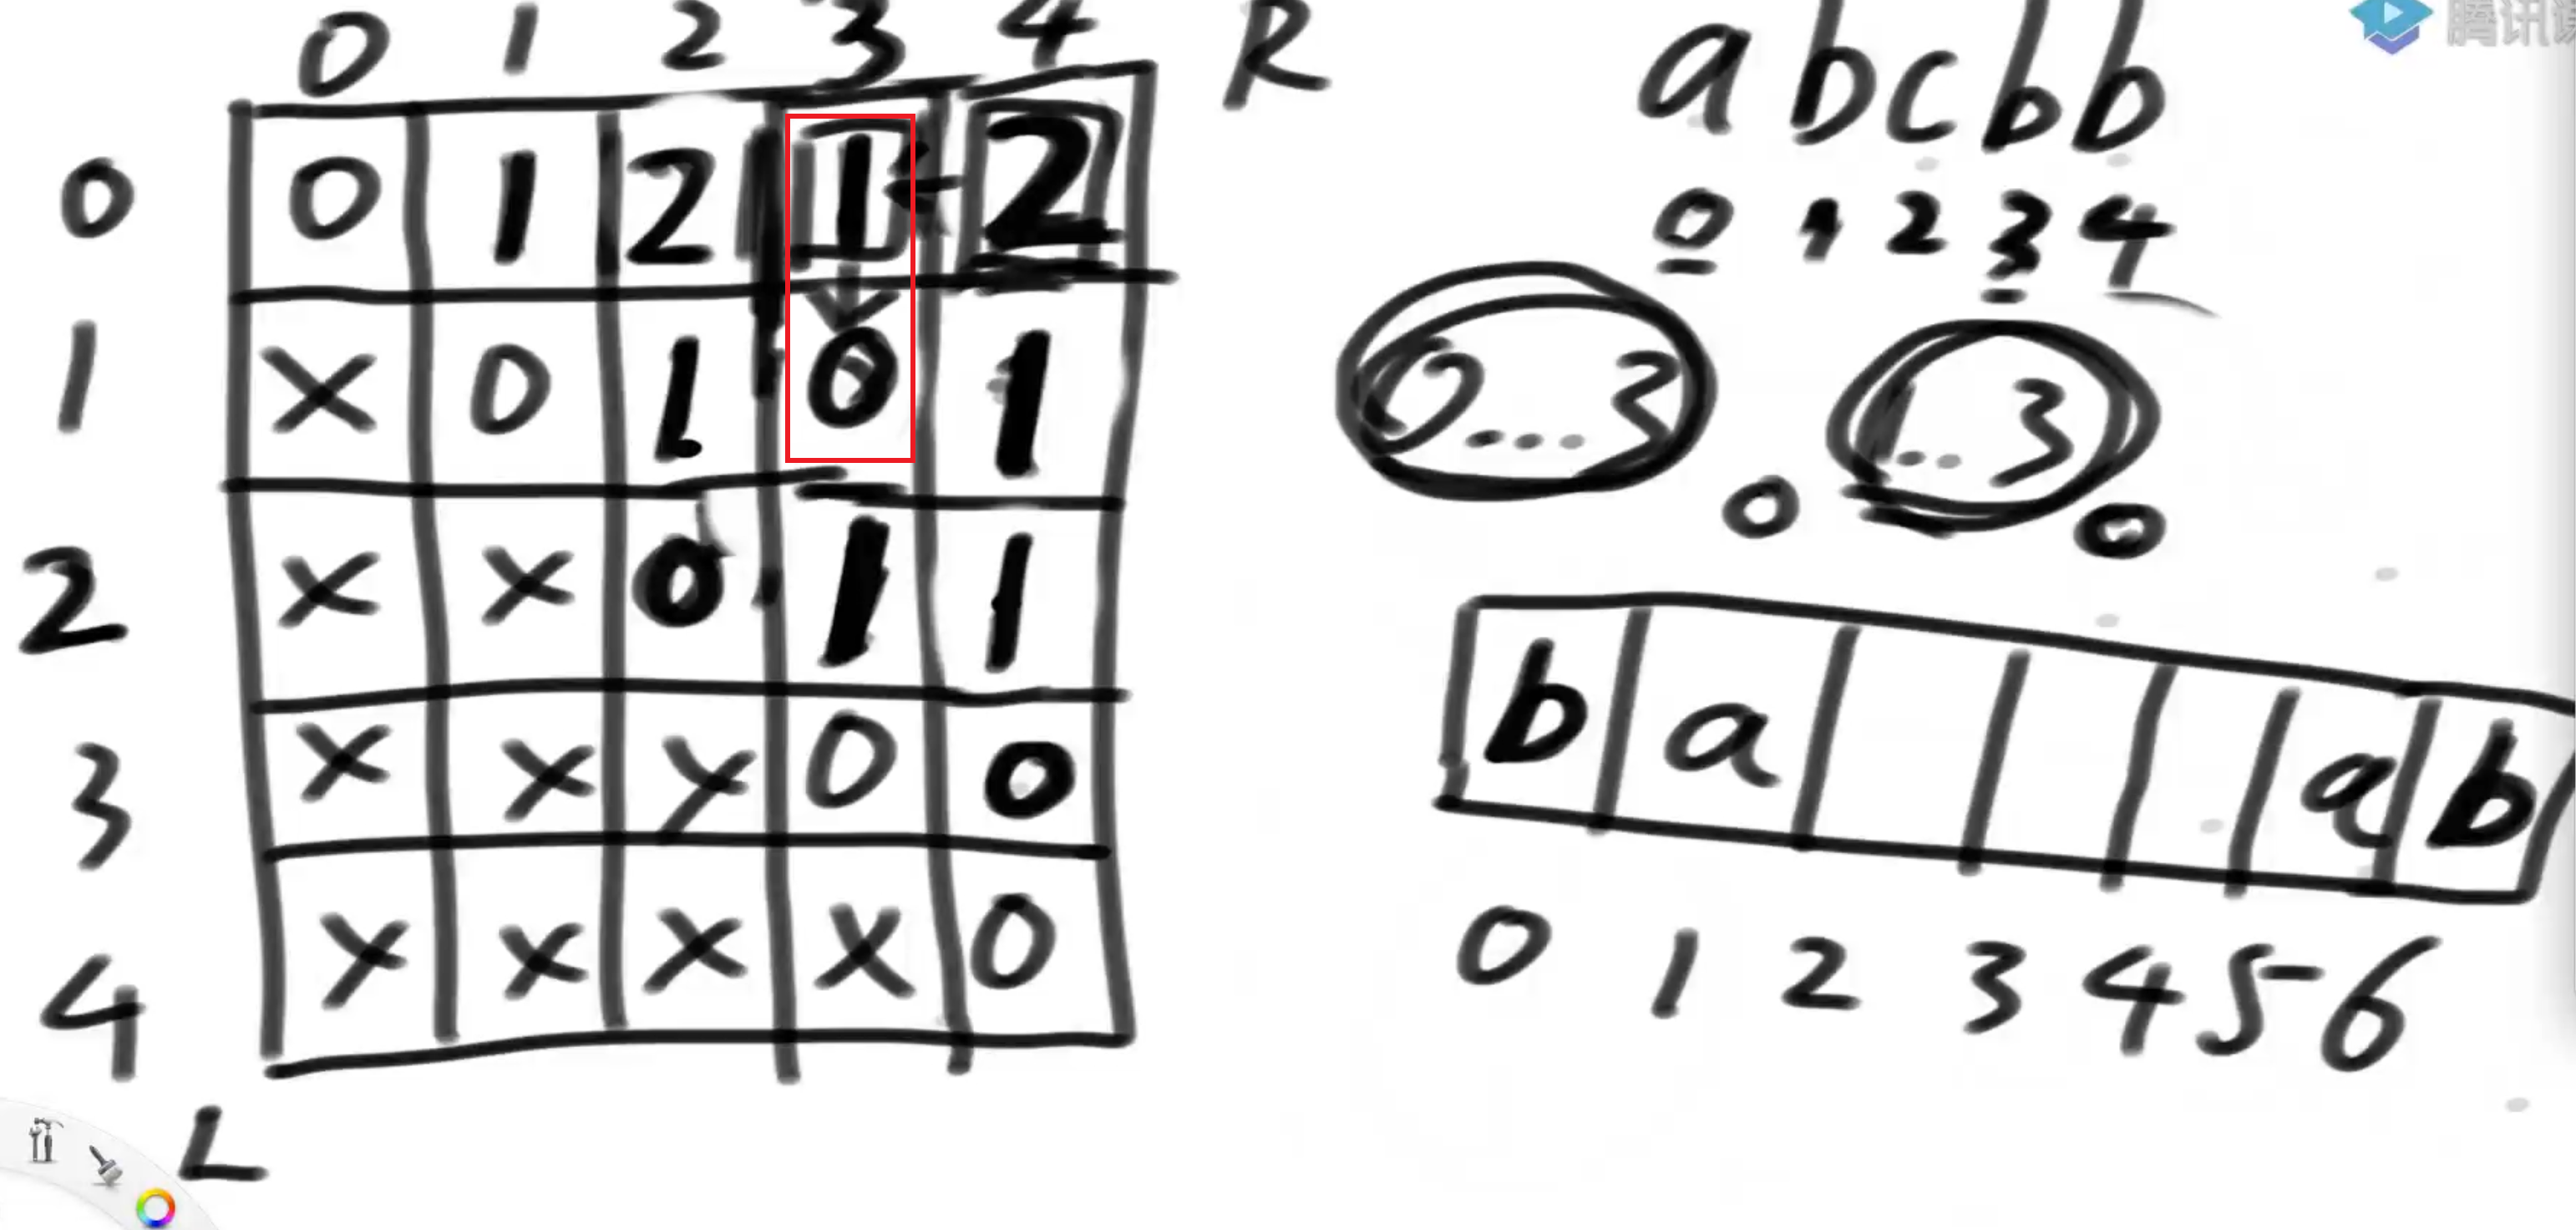 0 1 2 3 4 R
0 0 1 2 1 2
1 X 0 1 0 1
2 X X 0 1 1
3 X X X 0 0
4 X X X X 0
L
abcbb
0 1 2 3 4
0...3 1..3
0 0
b a a b
0 1 2 3 4 5 - 6
腾讯